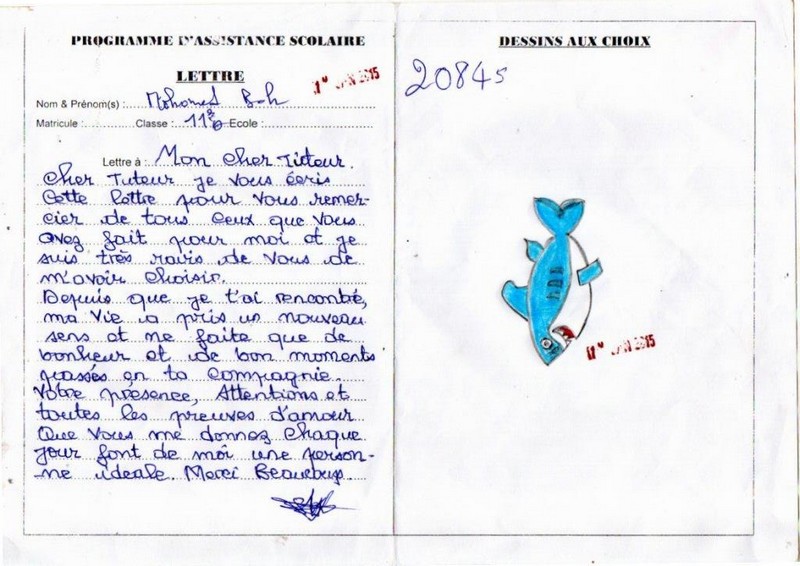 PROGRAMME D'ASSISTANCE SCOLAIRE
LETTRE
Nom & Prénom(s) : Mohamed Bah
Matricule : Classe : 11è Ecole :
Lettre à : Mon cher Tuteur.
Cher Tuteur je vous écris
Cette lettre pour vous remer-
cier de tous ceux que vous
avez fait pour moi et je
suis très ravis de vous de
m'avoir choisir.
Depuis que je t'ai rencontré,
ma vie a pris un nouveau
sens et ne faite que de
bonheur et de bon moments
passés en ta compagnie.
Votre présence, Attentions et
toutes les preuves d'amour
Que vous me donnez chaque
jour font de moi une person-
ne ideale. Merci Beaucoup
DESSINS AUX CHOIX
20845